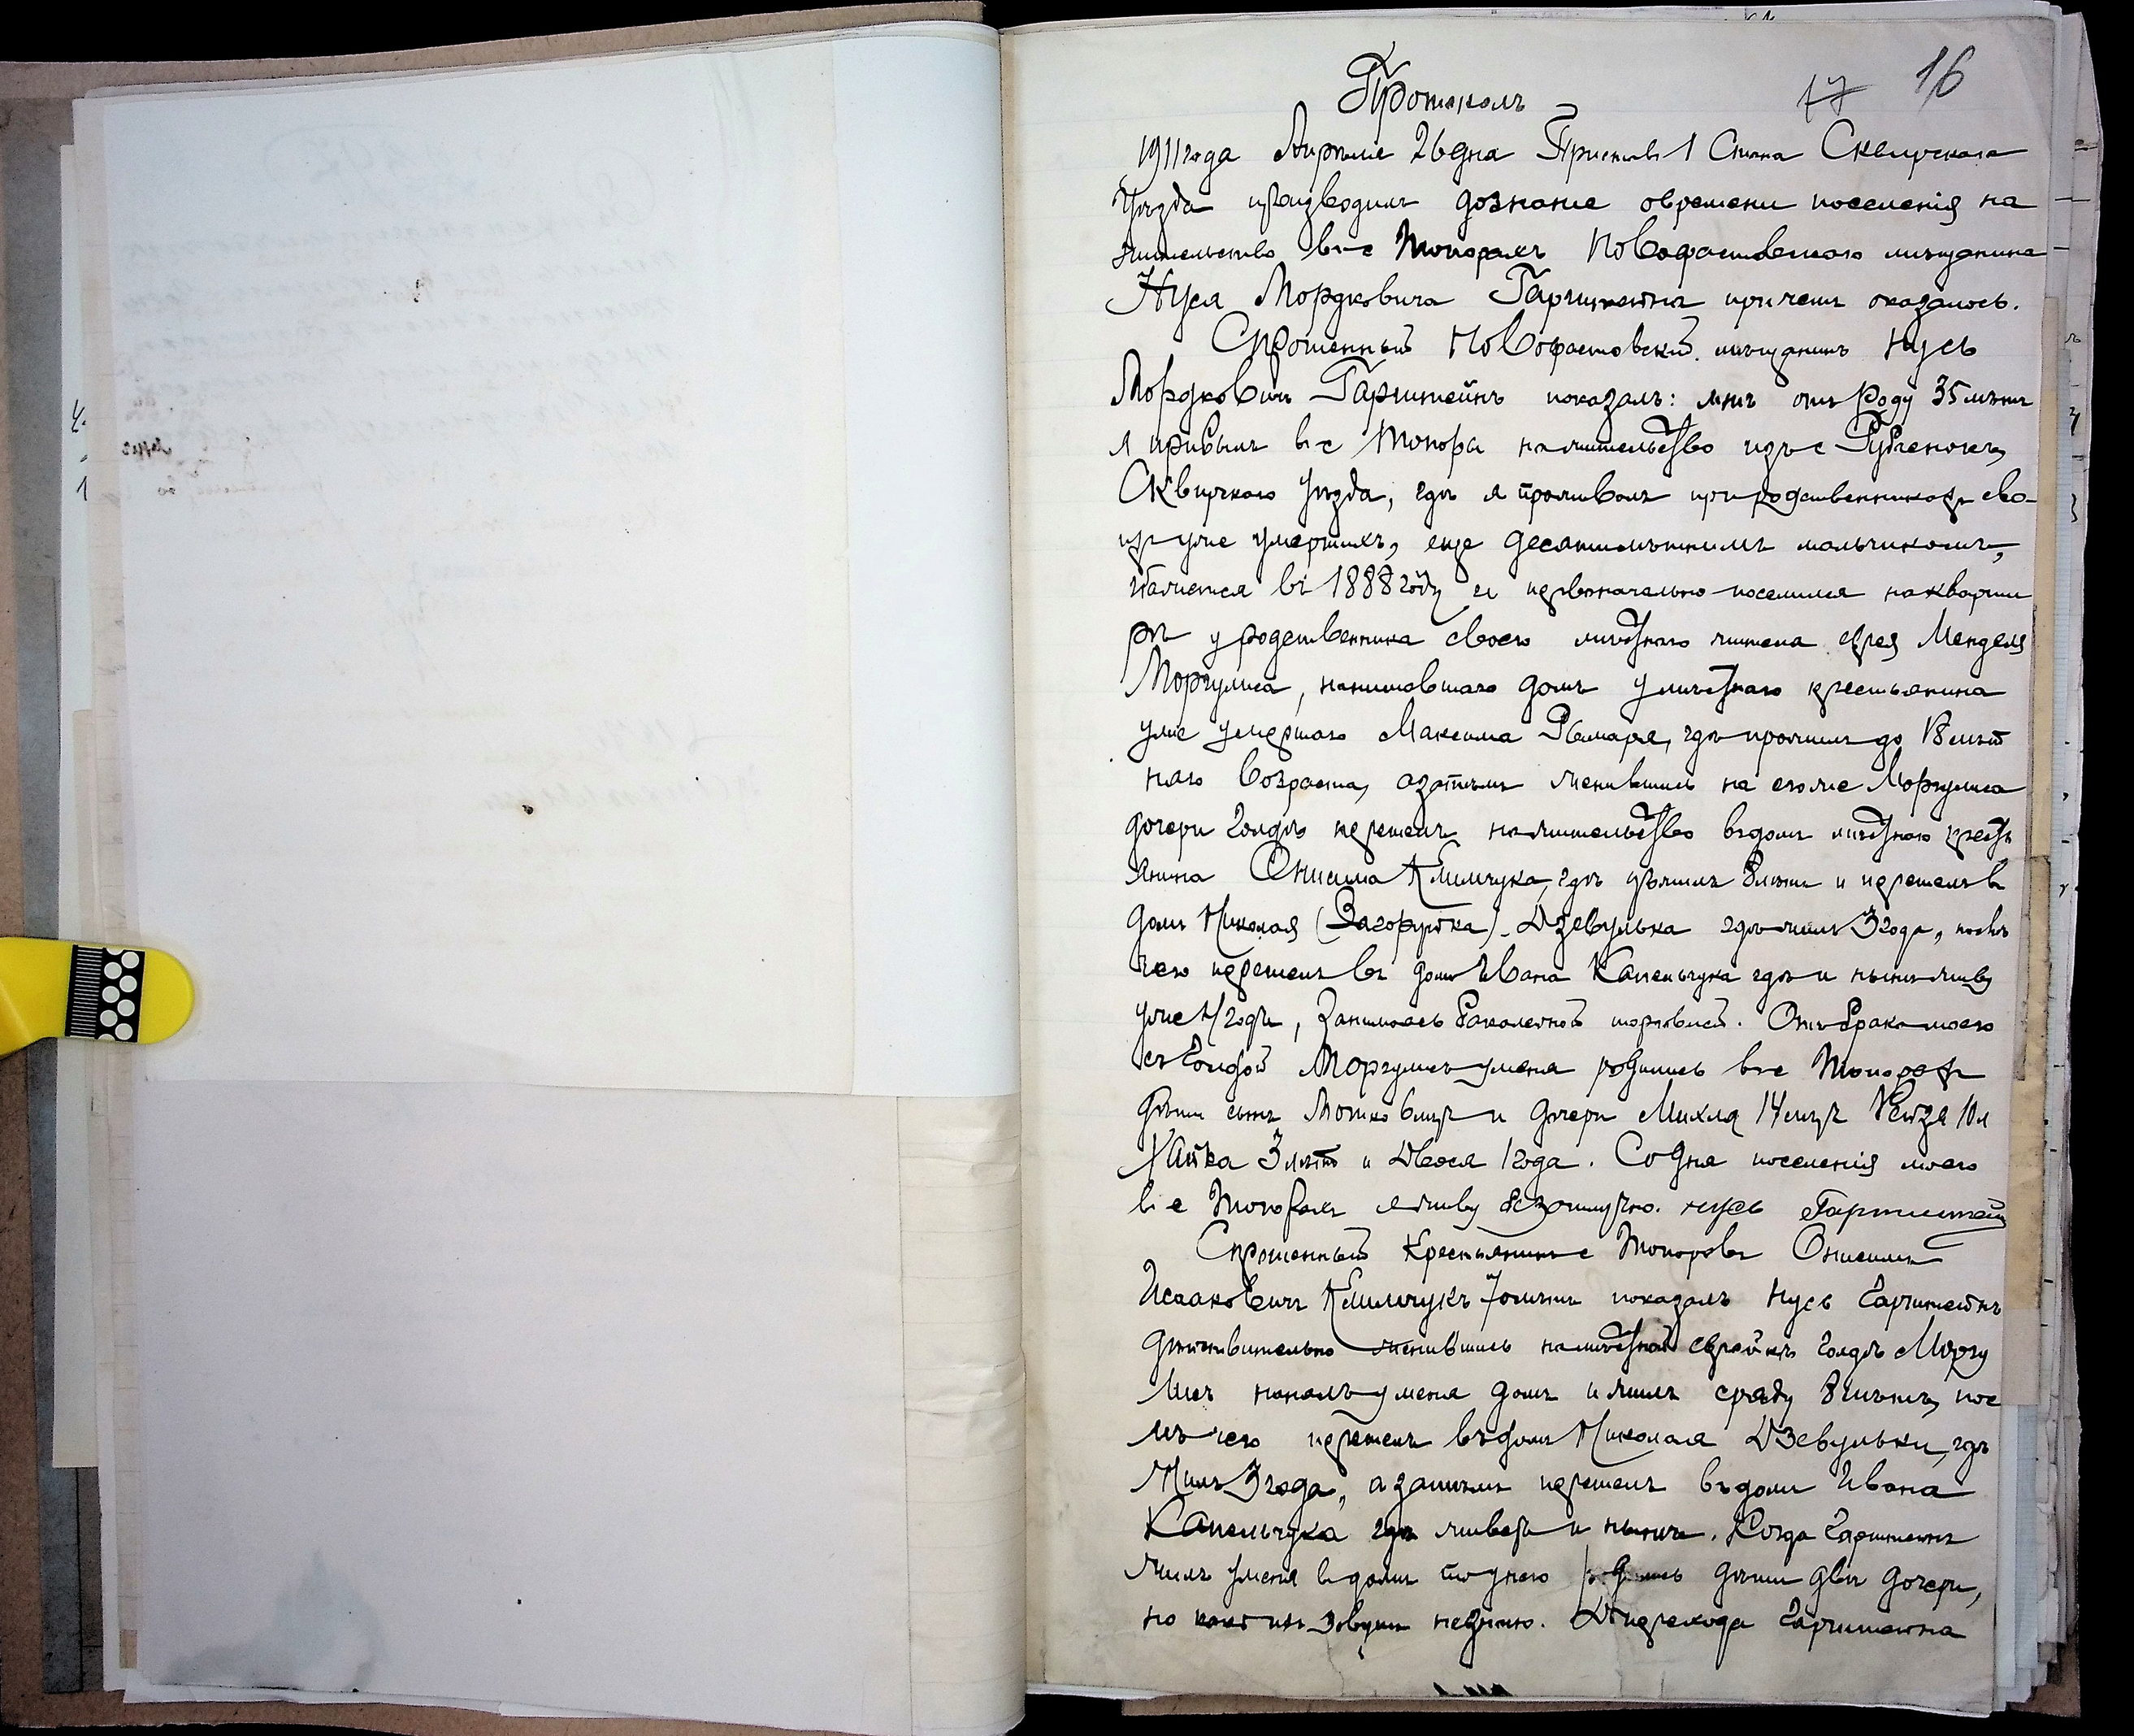 17 16
Протоколъ
1911 года Апрѣля 26 дня Приставъ 1 Стана Сквирскаго
Уѣзда производилъ дознаніе о времени поселенія на
жительство въ с Топорахъ Новофастовскаго мѣщанина
Нуся Мордковича Гарштейна при чемъ оказалось.
Спрошенный Новофастовскій мѣщанинъ Нусь
Мордковичъ Гарштейнъ показалъ: мнѣ отъ роду 35 лѣтъ
я прибылъ въ с Топоры на жительство изъ с Рубченокъ,
Сквирскаго уѣзда, гдѣ я проживалъ при родственникахъ сво-
ихъ уже умершихъ, еще десятилѣтнимъ мальчикомъ,
кажется въ 1888 году и первоначально поселился на кварти
рѣ у родственника своего мѣстнаго жителя еврея Менделя
Моргулиса, нанимавшаго домъ у мѣстнаго крестьянина
уже умершаго Максима гдѣ прожилъ до 18 лѣт
няго возраста, а затѣмъ женившись на его же Моргулиса
дочери Голдѣ перешелъ на жительство въ домъ мѣстнаго кресть
янина Онисима Климчука, гдѣ прожилъ 8 лѣтъ и перешелъ в
домъ Николая (Загоруйка) Дзевулька гдѣ жилъ 3 года, послѣ
чего перешелъ въ домъ Ивана Капельчука гдѣ и нынѣ живу
уже 4 годъ, занимаясь бакалейной торговлей. Отъ брака моего
съ Голдой Моргулисъ у меня родились въ с Топорахъ
дѣти сынъ Мотко 6 лѣтъ и дочери Михля 14 лѣтъ Рейзя 10 л
Хайка 3 лѣтъ и Двося 1 года. Со дня поселенія моего
въ с Топорахъ я живу безотлучно. Нусь Гарштейн
Спрошенный Крестьянинъ с Топоровъ Онисимъ
Исааковичъ Климчукъ 70 лѣтъ показалъ Нусь Гарштейнъ
дѣйствительно женившись на мѣстной еврейкѣ Голдѣ Моргу
лисъ нанялъ у меня домъ и жилъ сряду 8 лѣтъ, пос
лѣ чего перешелъ въ домъ Николая Дзевульки, гдѣ
жилъ 3 года, а затѣмъ перешелъ въ домъ Ивана
Капельчука гдѣ живетъ и нынѣ. Когда Гарштейнъ
жилъ у меня въ домѣ то у него родились дѣти двѣ дочери,
но какъ ихъ зовутъ не знаю. До перехода Гарштейна